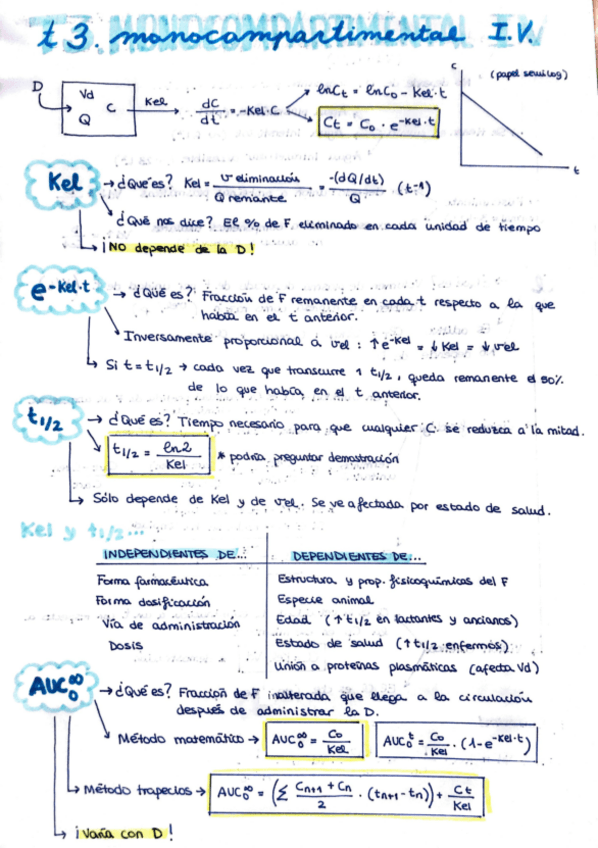 t3. monocompartimental I.V.
D Vd C Q Kel dC/dt = -Kel·C lnCt = lnC0 - Kel·t
Ct = C0 · e^-Kel·t
C (papel semilog) t
Kel → ¿Qué es? Kel = v eliminación / Q remanente = -(dQ/dt) / Q (t^-1)
¿Qué nos dice? El % de F eliminado en cada unidad de tiempo
¡NO depende de la D!
e^-Kel·t → ¿Qué es? Fracción de F remanente en cada t respecto a la que
había en el t anterior.
Inversamente proporcional a vel : ↑e^-Kel = ↓Kel = ↓vel
Si t = t1/2 → cada vez que transcurre 1 t1/2, queda remanente el 50%
de lo que había en el t anterior.
t1/2 → ¿Qué es? Tiempo necesario para que cualquier C. se reduzca a la mitad.
t1/2 = ln2 / Kel * podría preguntar demostración
Sólo depende de Kel y de vel. Se ve afectada por estado de salud.
Kel y t1/2...
INDEPENDIENTES DE... DEPENDIENTES DE...
Forma farmacéutica Estructura y prop. fisicoquímicas del F
Forma dosificación Especie animal
Vía de administración Edad (↑t1/2 en lactantes y ancianos)
Dosis Estado de salud (↑t1/2 enfermos)
Unión a proteínas plasmáticas (afecta Vd)
AUC0^∞ → ¿Qué es? Fracción de F inalterada que llega a la circulación
después de administrar la D.
Método matemático → AUC0^∞ = C0 / Kel AUC0^t = C0 / Kel · (1-e^-Kel·t)
Método trapecios → AUC0^∞ = (Σ Cn+1 + Cn / 2 · (tn+1 - tn)) + Ct / Kel
¡Varía con D!